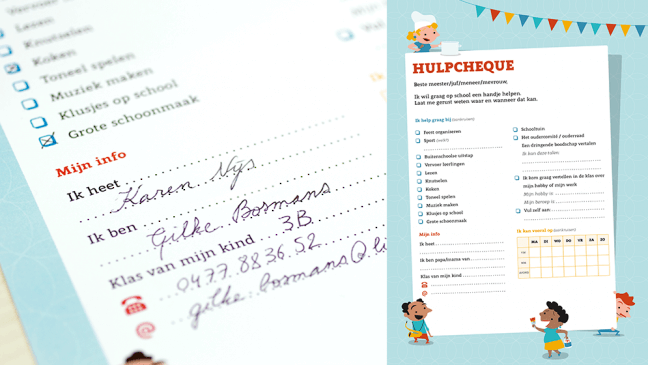 Vervoer
Lezen
Knutselen
Koken
Toneel spelen
Muziek maken
Klusjes op school
Grote schoonmaak
Mijn info
Ik heet Karen Nys
Ik ben Gitke Bosmans
Klas van mijn kind 3B
0477.88 36.52
gitke.bosmans@
HULPCHEQUE
Beste meester/juf/meneer/mevrouw,
Ik wil graag op school een handje helpen.
Laat me gerust weten waar en wanneer dat kan.
Ik help graag bij (aankruisen)
Feest organiseren
Sport (welk?)
Buitenschoolse uitstap
Vervoer leerlingen
Lezen
Knutselen
Koken
Toneel spelen
Muziek maken
Klusjes op school
Grote schoonmaak
Mijn info
Ik heet
Ik ben papa/mama van
Klas van mijn kind
@
Schooltuin
Het oudercomité / ouderraad
Een dringende boodschap vertalen
Ik kan deze talen
Ik kom graag vertellen in de klas over
mijn hobby of mijn werk
Mijn hobby is
Mijn beroep is
Vul zelf aan
Ik kan vooral op (aankruisen)
MA DI WO DO VR ZA ZO